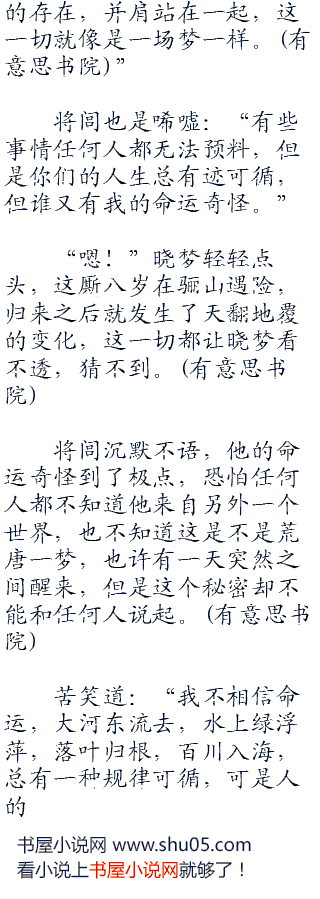 的存在，并肩站在一起，这
一切就像是一场梦一样。(有
意思书院)”
将闾也是唏嘘：“有些
事情任何人都无法预料，但
是你们的人生总有迹可循，
但谁又有我的命运奇怪。”
“嗯！”晓梦轻轻点
头，这厮八岁在骊山遇险，
归来之后就发生了天翻地覆
的变化，这一切都让晓梦看
不透，猜不到。(有意思书
院)
将闾沉默不语，他的命
运奇怪到了极点，恐怕任何
人都不知道他来自另外一个
世界，也不知道这是不是荒
唐一梦，也许有一天突然之
间醒来，但是这个秘密却不
能和任何人说起。(有意思书
院)
苦笑道：“我不相信命
运，大河东流去，水上绿浮
萍，落叶归根，百川入海，
总有一种规律可循，可是人
的
书屋小说网 www.shu05.com
看小说上书屋小说网就够了！